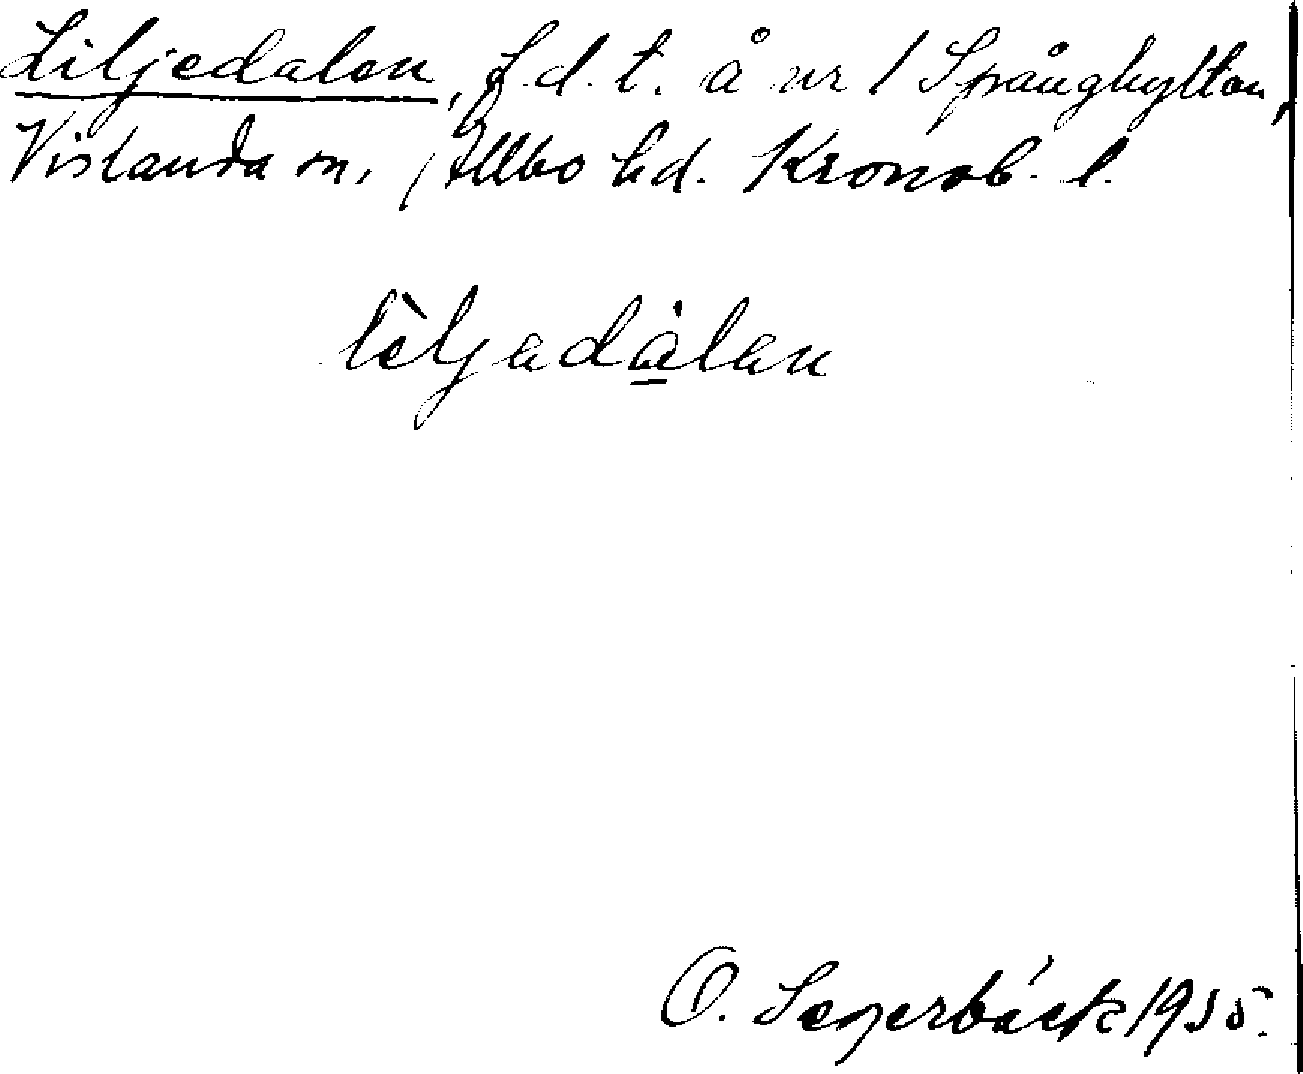 Liljedalen, f.d.t. å nr 1 Spånghyltan,
Vislanda sn, Allbo hd. Kronob. l.
lìljadálan
O. Segerbäck 1935.